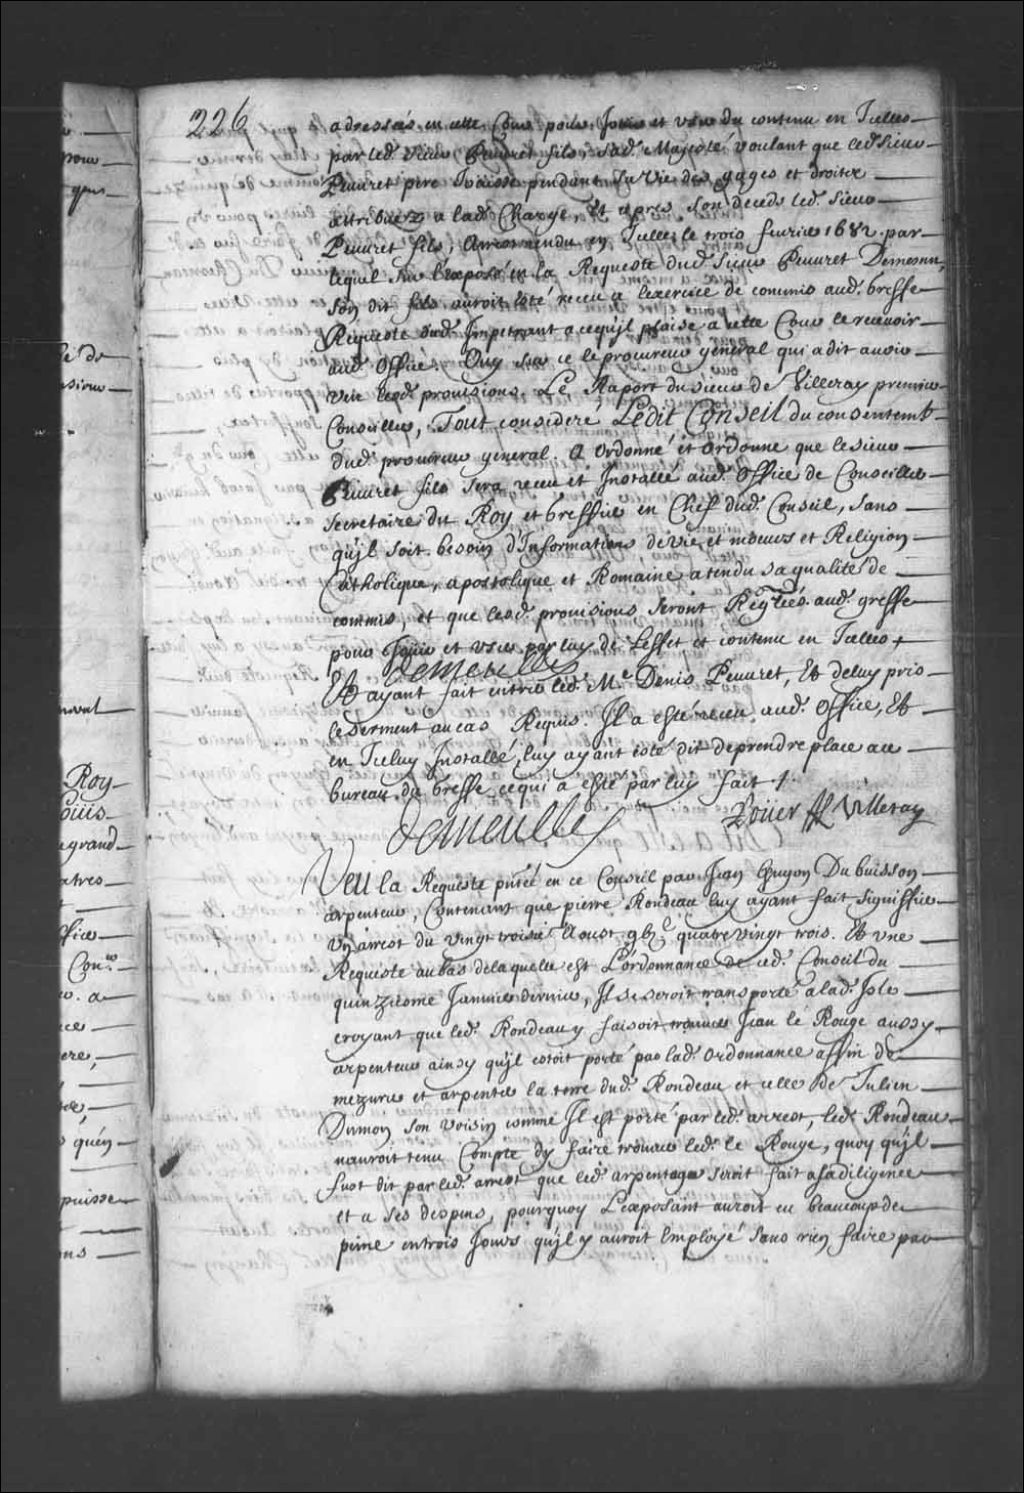 226
adressées en cette Cour pour Jouir et user du contenu en Icelles
par led. Sieur Peuuret fils, Sad. Majesté voulant que led. Sieur
Peuuret pere Jouisse pendant sa vie des gages et droitz
attribuez a lad. Charge, Et apres son deceds led. Sieur
Peuuret fils, Arrest rendu en Icelles le trois feurier 1682. par
lequel sur l'exposé en la Requeste dud. Sieur Peuuret Demesnu,
son dit fils auroit esté receu a l'exercice de commis aud. Greffe
Requeste dud. Impetrant a ce qu'jl plaise a cette Cour le recevoir
aud. Office. Ouy sur ce le procureur general qui a dit auoir
veu lesd. provisions, Le Raport du sieur de Villeray premier
Conseiller, Tout consideré Ledit Conseil du consentemt
dud. procureur general. A Ordonné et Ordonne que le sieur
Peuuret fils sera receu et Installé aud. Office de Conseiller
Secretaire du Roy et Greffier en Chef dud. Conseil, sans
qu'jl soit besoin d'Informations de vie, et moeurs et Religion
Catholique, apostolique et Romaine atendu sa qualité de
commis, et que lesd. provisions seront Regrées. aud. greffe
pour Jouir et user par luy de l'effet et contenu en Icelles +
demeulles
Et ayant fait entrer led. Me Denis Peuuret, Et de luy pris
le serment au cas Requis. Il a esté receu aud. Office, Et
en Iceluy Installé, luy ayant esté dit de prendre place au
bureau du Greffe, ce qui a esté par luy fait ./.
demeulles Roüer Villeray
Veu la Requeste pñtée en ce Conseil par Jean Guyon Du buisson
arpenteur, Contenant que pierre Rondeau luy ayant fait signiffier
Vn arrest du vingt troise Aoust gbjc quatre vingt trois. Et vne
Requeste au bas de laquelle est L'ordonnance de ced. Conseil du
quinziesme Januier dernier, Il se seroit transporté a lad. Isle
croyant que led. Rondeau y faisoit trouuer Jean le Rouge aussy
arpenteur ainsy qu'jl estoit porté par lad. Ordonnance affin de
mezurer et arpenter la terre dud. Rondeau et celle de Julien
Dumon son voisin comme Il est porté par led. arrest, led. Rondeau
n'auroit tenu Compte d'y faire trouuer led. le Rouge, quoy qu'jl
fust dit par led. arrest que led. arpentage seroit fait a sa diligence
et a ses despens, pourquoy L'exposant auroit eu beaucoup de
peine en trois Jours qu'jl y auroit Employé sans rien faire par